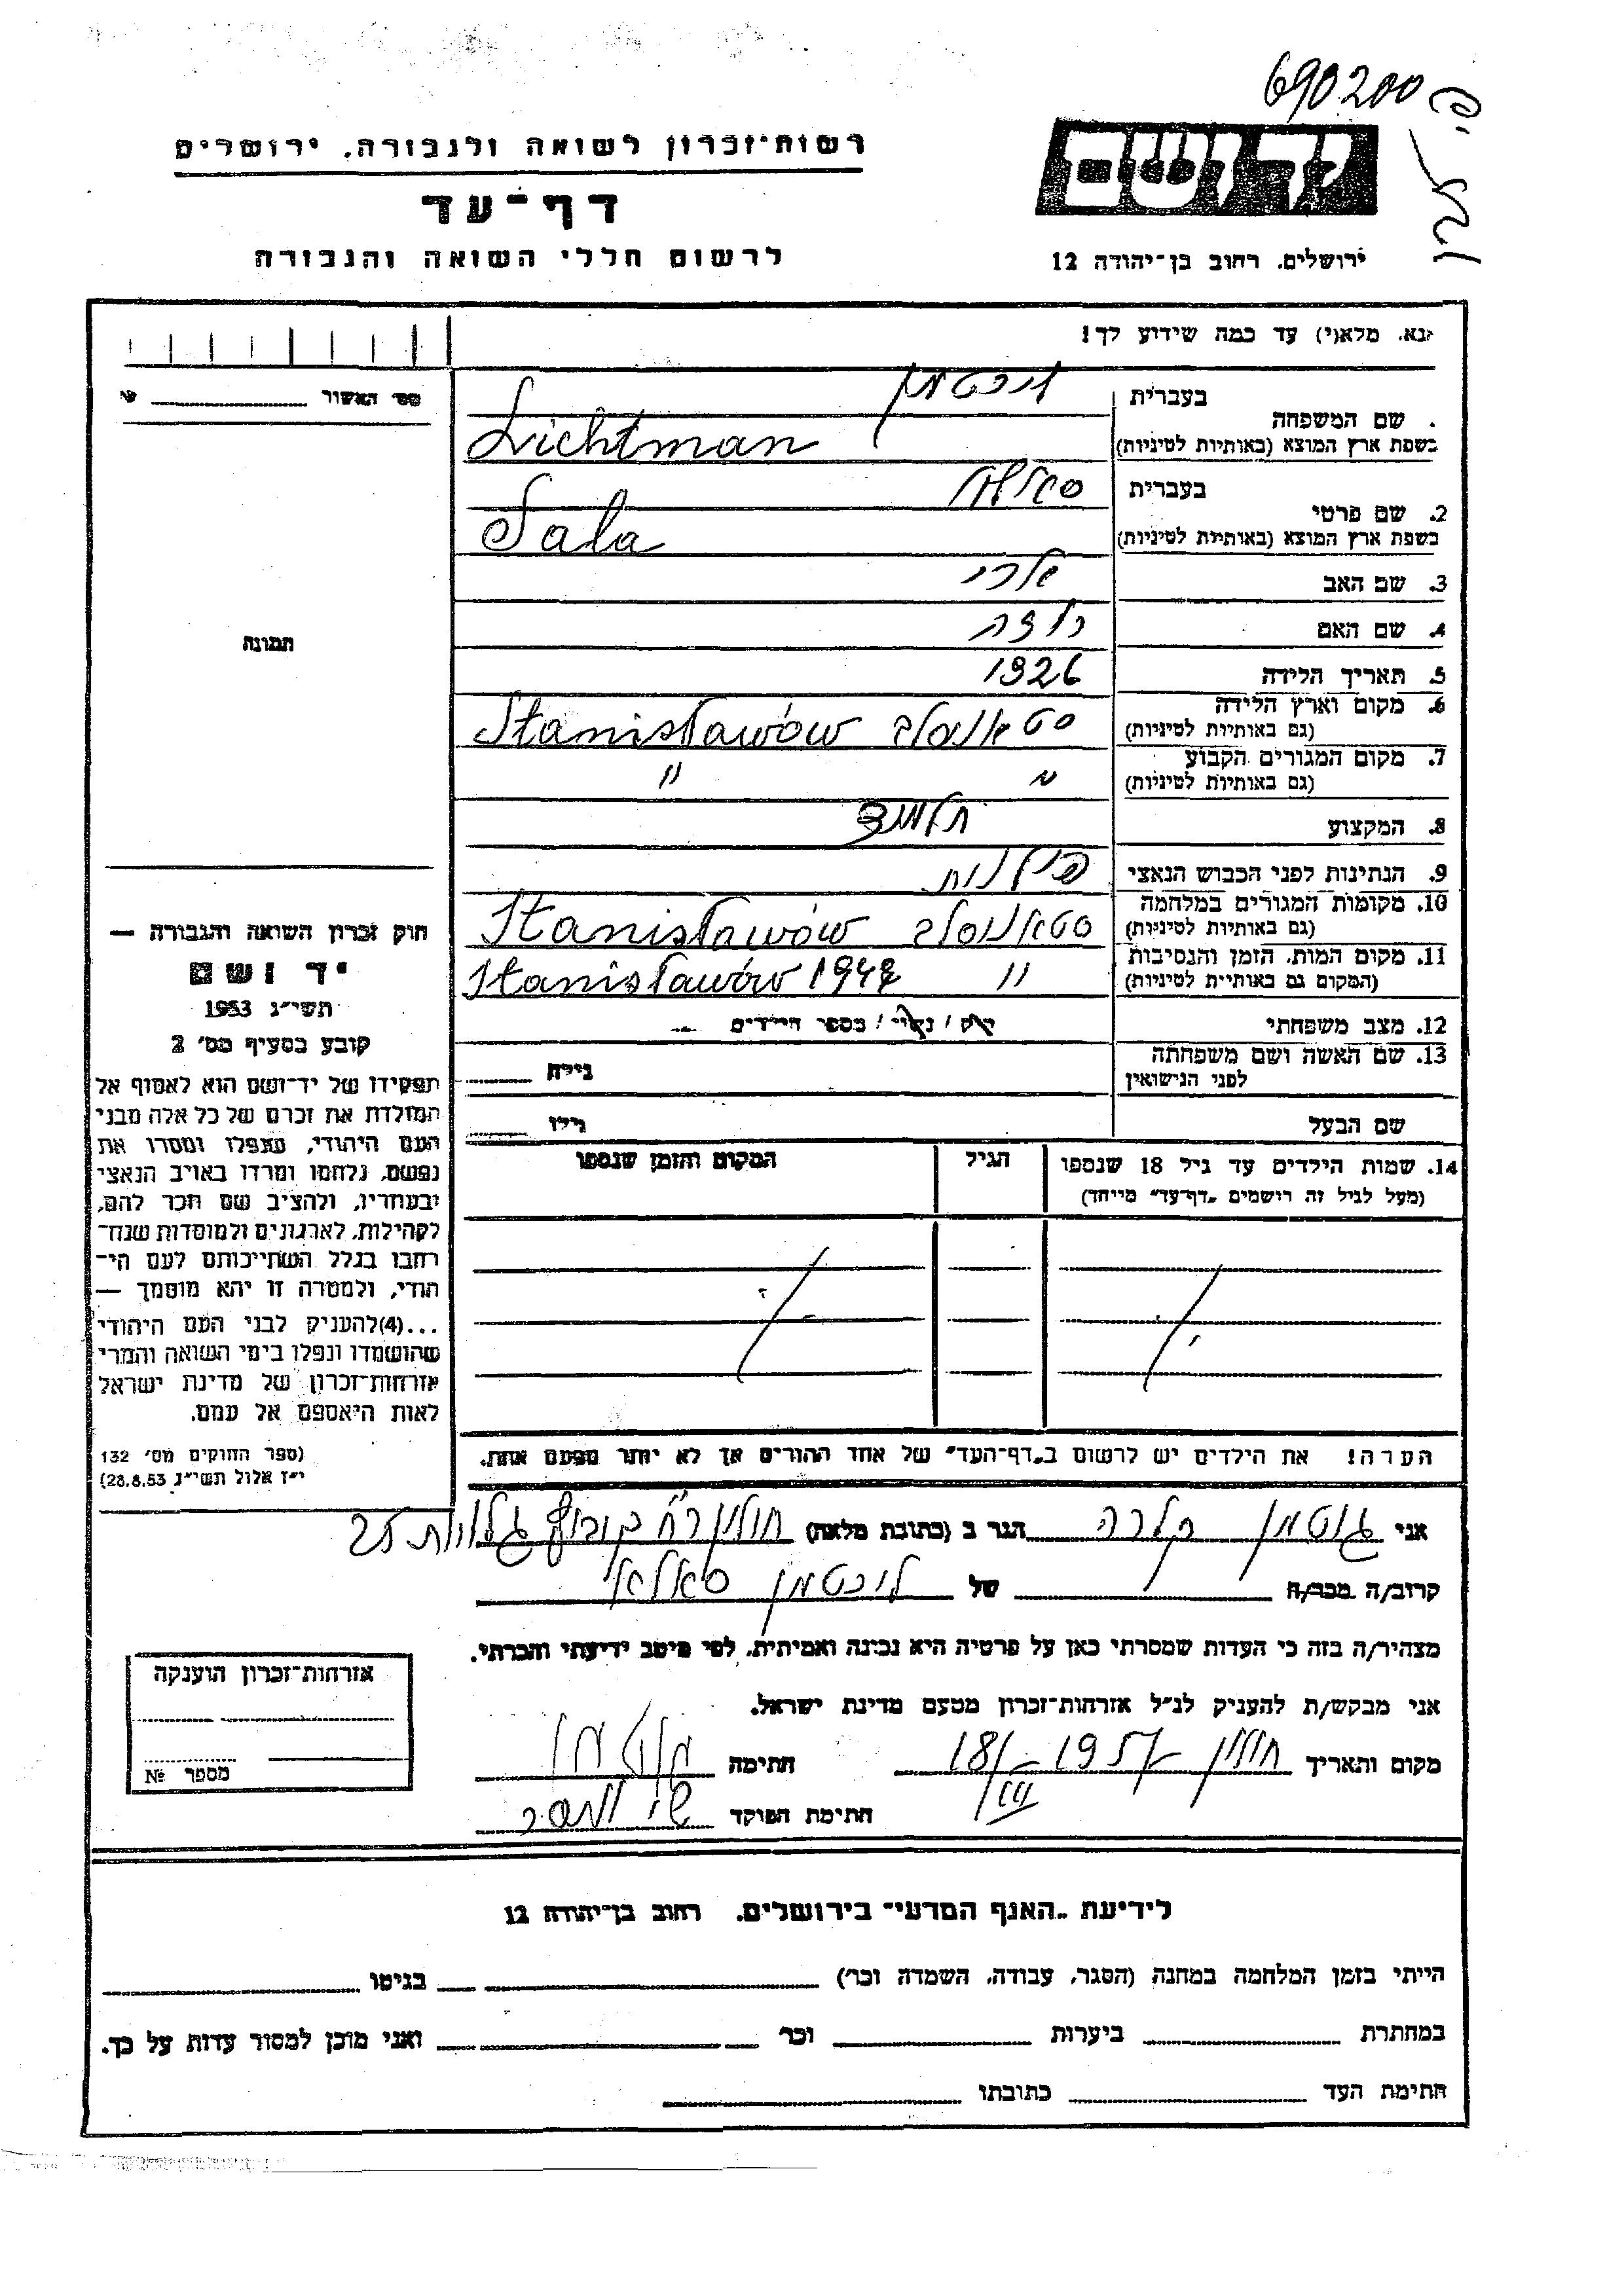 690200
רשות־זכרון לשואה ולגבורה. ירושלים
דף־עד
לרשום חללי השואה והגבורה
ירושלים. רחוב בן־יהודה 12
נא. מלא(י) עד כמה שידוע לך!
מס׳ האשור
בעברית ליכטמן
שם המשפחה
בשפת ארץ המוצא (באותיות לטיניות) Lichtman
בעברית
2. שם פרטי
בשפת ארץ המוצא (באותיות לטיניות) Sala
3. שם האב
4. שם האם
5. תאריך הלידה 1926
6. מקום וארץ הלידה
(גם באותיות לטיניות) Stanisławów
7. מקום המגורים הקבוע
(גם באותיות לטיניות) " "
8. המקצוע
9. הנתינות לפני הכבוש הנאצי פולנית
10. מקומות המגורים במלחמה
(גם באותיות לטיניות) Stanisławów
11. מקום המות. הזמן והנסיבות
(המקום גם באותיות לטיניות) " Stanisławów
12. מצב משפחתי
13. שם האשה ושם משפחתה
לפני הנישואין גילה
שם הבעל גילו
14. שמות הילדים עד גיל 18 שנספו הגיל המקום והזמן שנספו
(מעל לגיל זה רושמים „דף־עד״ מייחד)
הערה! את הילדים יש לרשום ב„דף־העד״ של אחד ההורים אך לא יותר מפעם אחת.
תמונה
חוק זכרון השואה והגבורה —
יד ושם
תשי״ג 1953
קובע בסעיף מס׳ 2
תפקידו של יד־ושם הוא לאסוף אל
המולדת את זכרם של כל אלה מבני
העם היהודי, שנפלו ומסרו את
נפשם, נלחמו ומרדו באויב הנאצי
ובעוזריו, ולהציב שם וזכר להם,
לקהילות, לארגונים ולמוסדות שנח־
רבו בגלל השתייכותם לעם הי־
הודי, ולמטרה זו יהא מוסמך —
...(4) להעניק לבני העם היהודי
שהושמדו ונפלו בימי השואה והמרי
אזרחות־זכרון של מדינת ישראל
לאות היאספם אל עמם.
(ספר החוקים מס׳ 132
י״ז אלול תשי״ג 28.8.53)
אני גוטמן קלרה הגר ב (כתובת מלאה) חולון רח׳ קבוץ גלויות 25
קרוב/ה מכר/ה של ליכטמן
מצהיר/ה בזה כי העדות שמסרתי כאן על פרטיה היא נכונה ואמיתית. לפי מיטב ידיעתי והכרתי.
אני מבקש/ת להעניק לנ״ל אזרחות־זכרון מטעם מדינת ישראל.
מקום ותאריך חולון 18/III 1957 חתימה גוטמן
חתימת הפוקד
אזרחות־זכרון הוענקה
מספר №
לידיעת „האגף המדעי״ בירושלים. רחוב בן־יהודה 12
הייתי בזמן המלחמה במחנה (הסגר, עבודה, השמדה וכו׳) בגיטו
במחתרת ביערות וכו׳ ואני מוכן למסור עדות על כך.
חתימת העד כתובתו